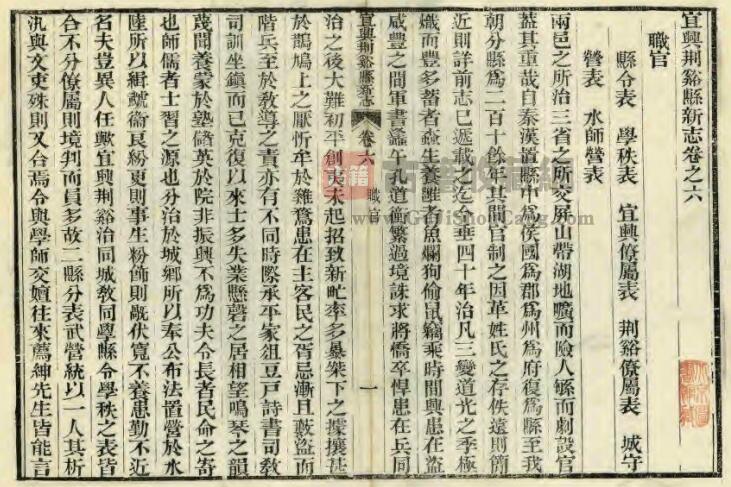 宜興荆谿縣新志卷之六
職官
縣令表　學秩表　宜興僚屬表　荆谿僚屬表　城守
營表　水師營表
兩邑之所治三省之所交屏山帶湖地曠而險人緐而劇設官
蓋其重哉自秦漢置縣中爲侯國爲郡爲州爲府復爲縣至我
朝分縣爲二百十餘年其間官制之因革姓氏之存佚遠則簡
近則詳前志已遞載之迄今垂四十年治凡三變道光之季極
熾而豐多蓄者蟲生養雝者魚爛狗偷鼠竊乘時間興患在盜
咸豐之間軍書蠭午孔道衝繁過境誅求將僑卒悍患在兵同
宜興荆谿縣新志　卷六　職官　一
治之後大難初平創夷未起招致新甿率多暴桀下之攘攘甚
於鵲鳩上之厭忻牟於雞鶩患在主客民之胥忌漸且藪盜而
階兵至於敎導之責亦有不同時際承平家俎豆戸詩書司敎
司訓坐鎮而已克復以來士多失業懸磬之居相望鳴琴之韻
蔑聞養蒙於塾儲英於院非振興不爲功夫令長者民命之寄
也師儒者士習之源也分治於城鄉所以奉公布法置營於水
陸所以緝虣衞良紛更則事生粉飾則戢伏寬不養患勤不近
名夫豈異人任歟宜興荆谿治同城敎同學縣令學秩之表皆
合不分僚屬則境判而員多故二縣分表武營統以一人其析
汛與文吏殊則又合焉令與學師交嬗往來薦紳先生皆能言